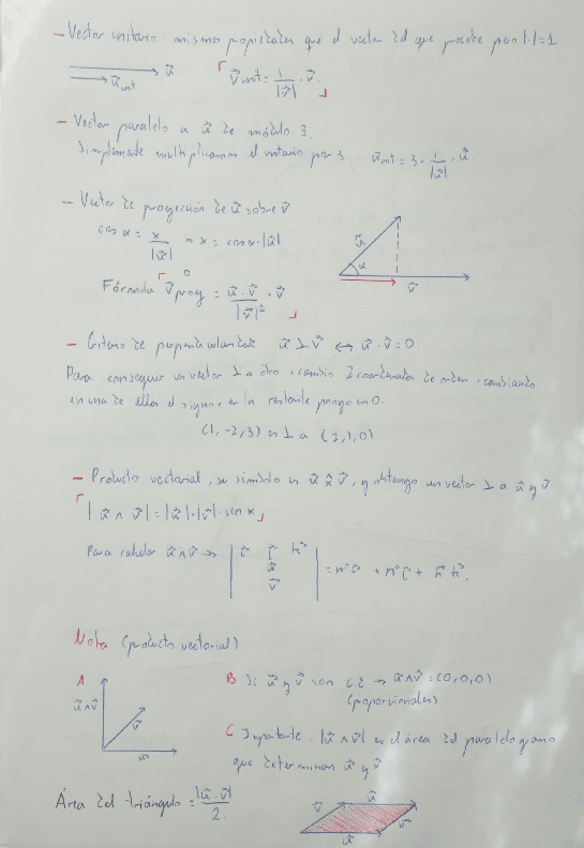 - Vector unitario: mismas propiedades que el vector del que procede pero |·|=1
u⃗
u⃗unit
v⃗unit = 1/|v⃗| · v⃗.
- Vector paralelo a u⃗ de módulo 3.
Simplemente multiplicamos el unitario por 3 u⃗unit = 3 · 1/|u⃗| · u⃗.
- Vector de proyección de u⃗ sobre v⃗
cos α = x/|u⃗| → x = cos α · |u⃗|
u⃗
α
v⃗
Fórmula v⃗proy = u⃗ · v⃗/|v⃗|² · v⃗
- Criterio de perpendicularidad u⃗ ⊥ v⃗ ↔ u⃗ · v⃗ = 0
Para conseguir un vector ⊥ a otro, cambio 2 coordenadas de orden, cambiando
en una de ellas el signo, en la restante pongo un 0.
(1, -2, 3) es ⊥ a (2, 1, 0)
- Producto vectorial, su símbolo es u⃗ x v⃗, y obtengo un vector ⊥ a u⃗ y v⃗
|u⃗ ∧ v⃗| = |u⃗| · |v⃗| · sen α
Para calcular u⃗ ∧ v⃗ →
u⃗
v⃗
Nota (producto vectorial)
A
u⃗ ∧ v⃗
v⃗
u⃗
B Si u⃗ y v⃗ son → u⃗ ∧ v⃗ = (0, 0, 0)
(proporcionales)
C Importante. |u⃗ ∧ v⃗| es el área del paralelogramo
que determinan u⃗ y v⃗
Área del triángulo = |u⃗ · v⃗|/2.
u⃗
v⃗
v⃗
u⃗